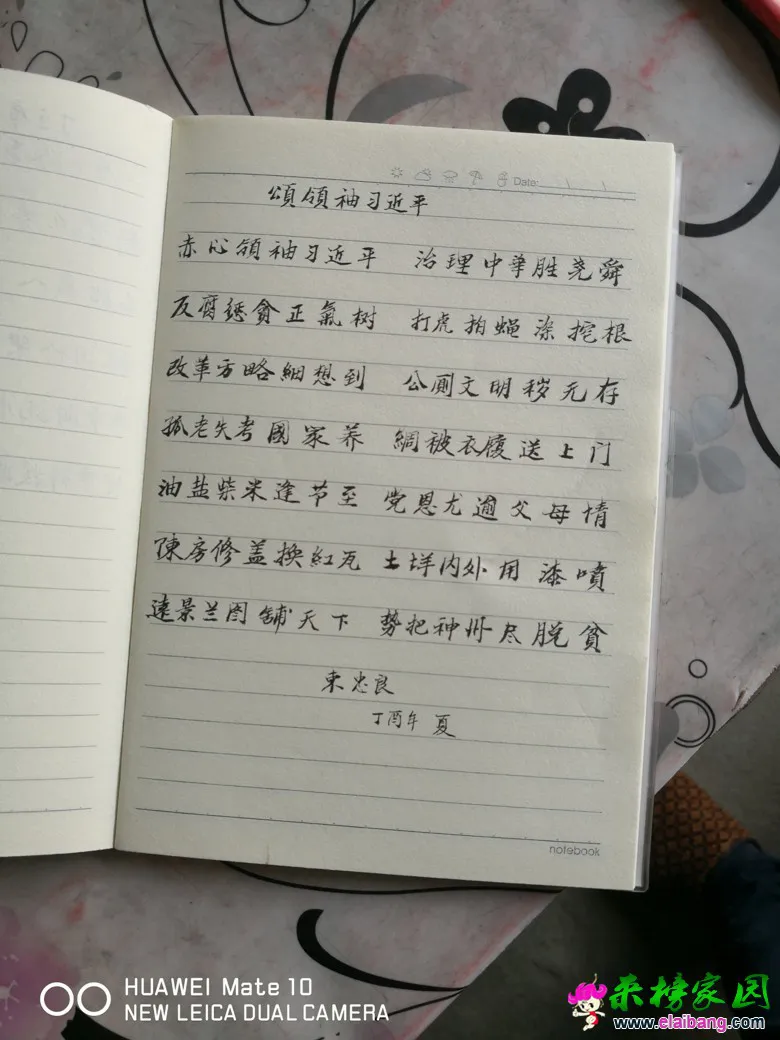 Date:
頌領袖习近平
赤心領袖习近平 治理中華胜尧舜
反腐惩貪正氣树 打虎拍蝇深挖根
改革方略細想到 公厕文明秽无存
抓老失考國家养 綢被衣履送上门
油盐柴米逢节至 党恩尤逾父母情
陳房修盖換紅瓦 土垟内外用漆噴
遠景兰图舖天下 势把神州尽脱貧
東忠良
丁酉年 夏
notebook
HUAWEI Mate 10
NEW LEICA DUAL CAMERA
来榜家园
www.elaibang.com